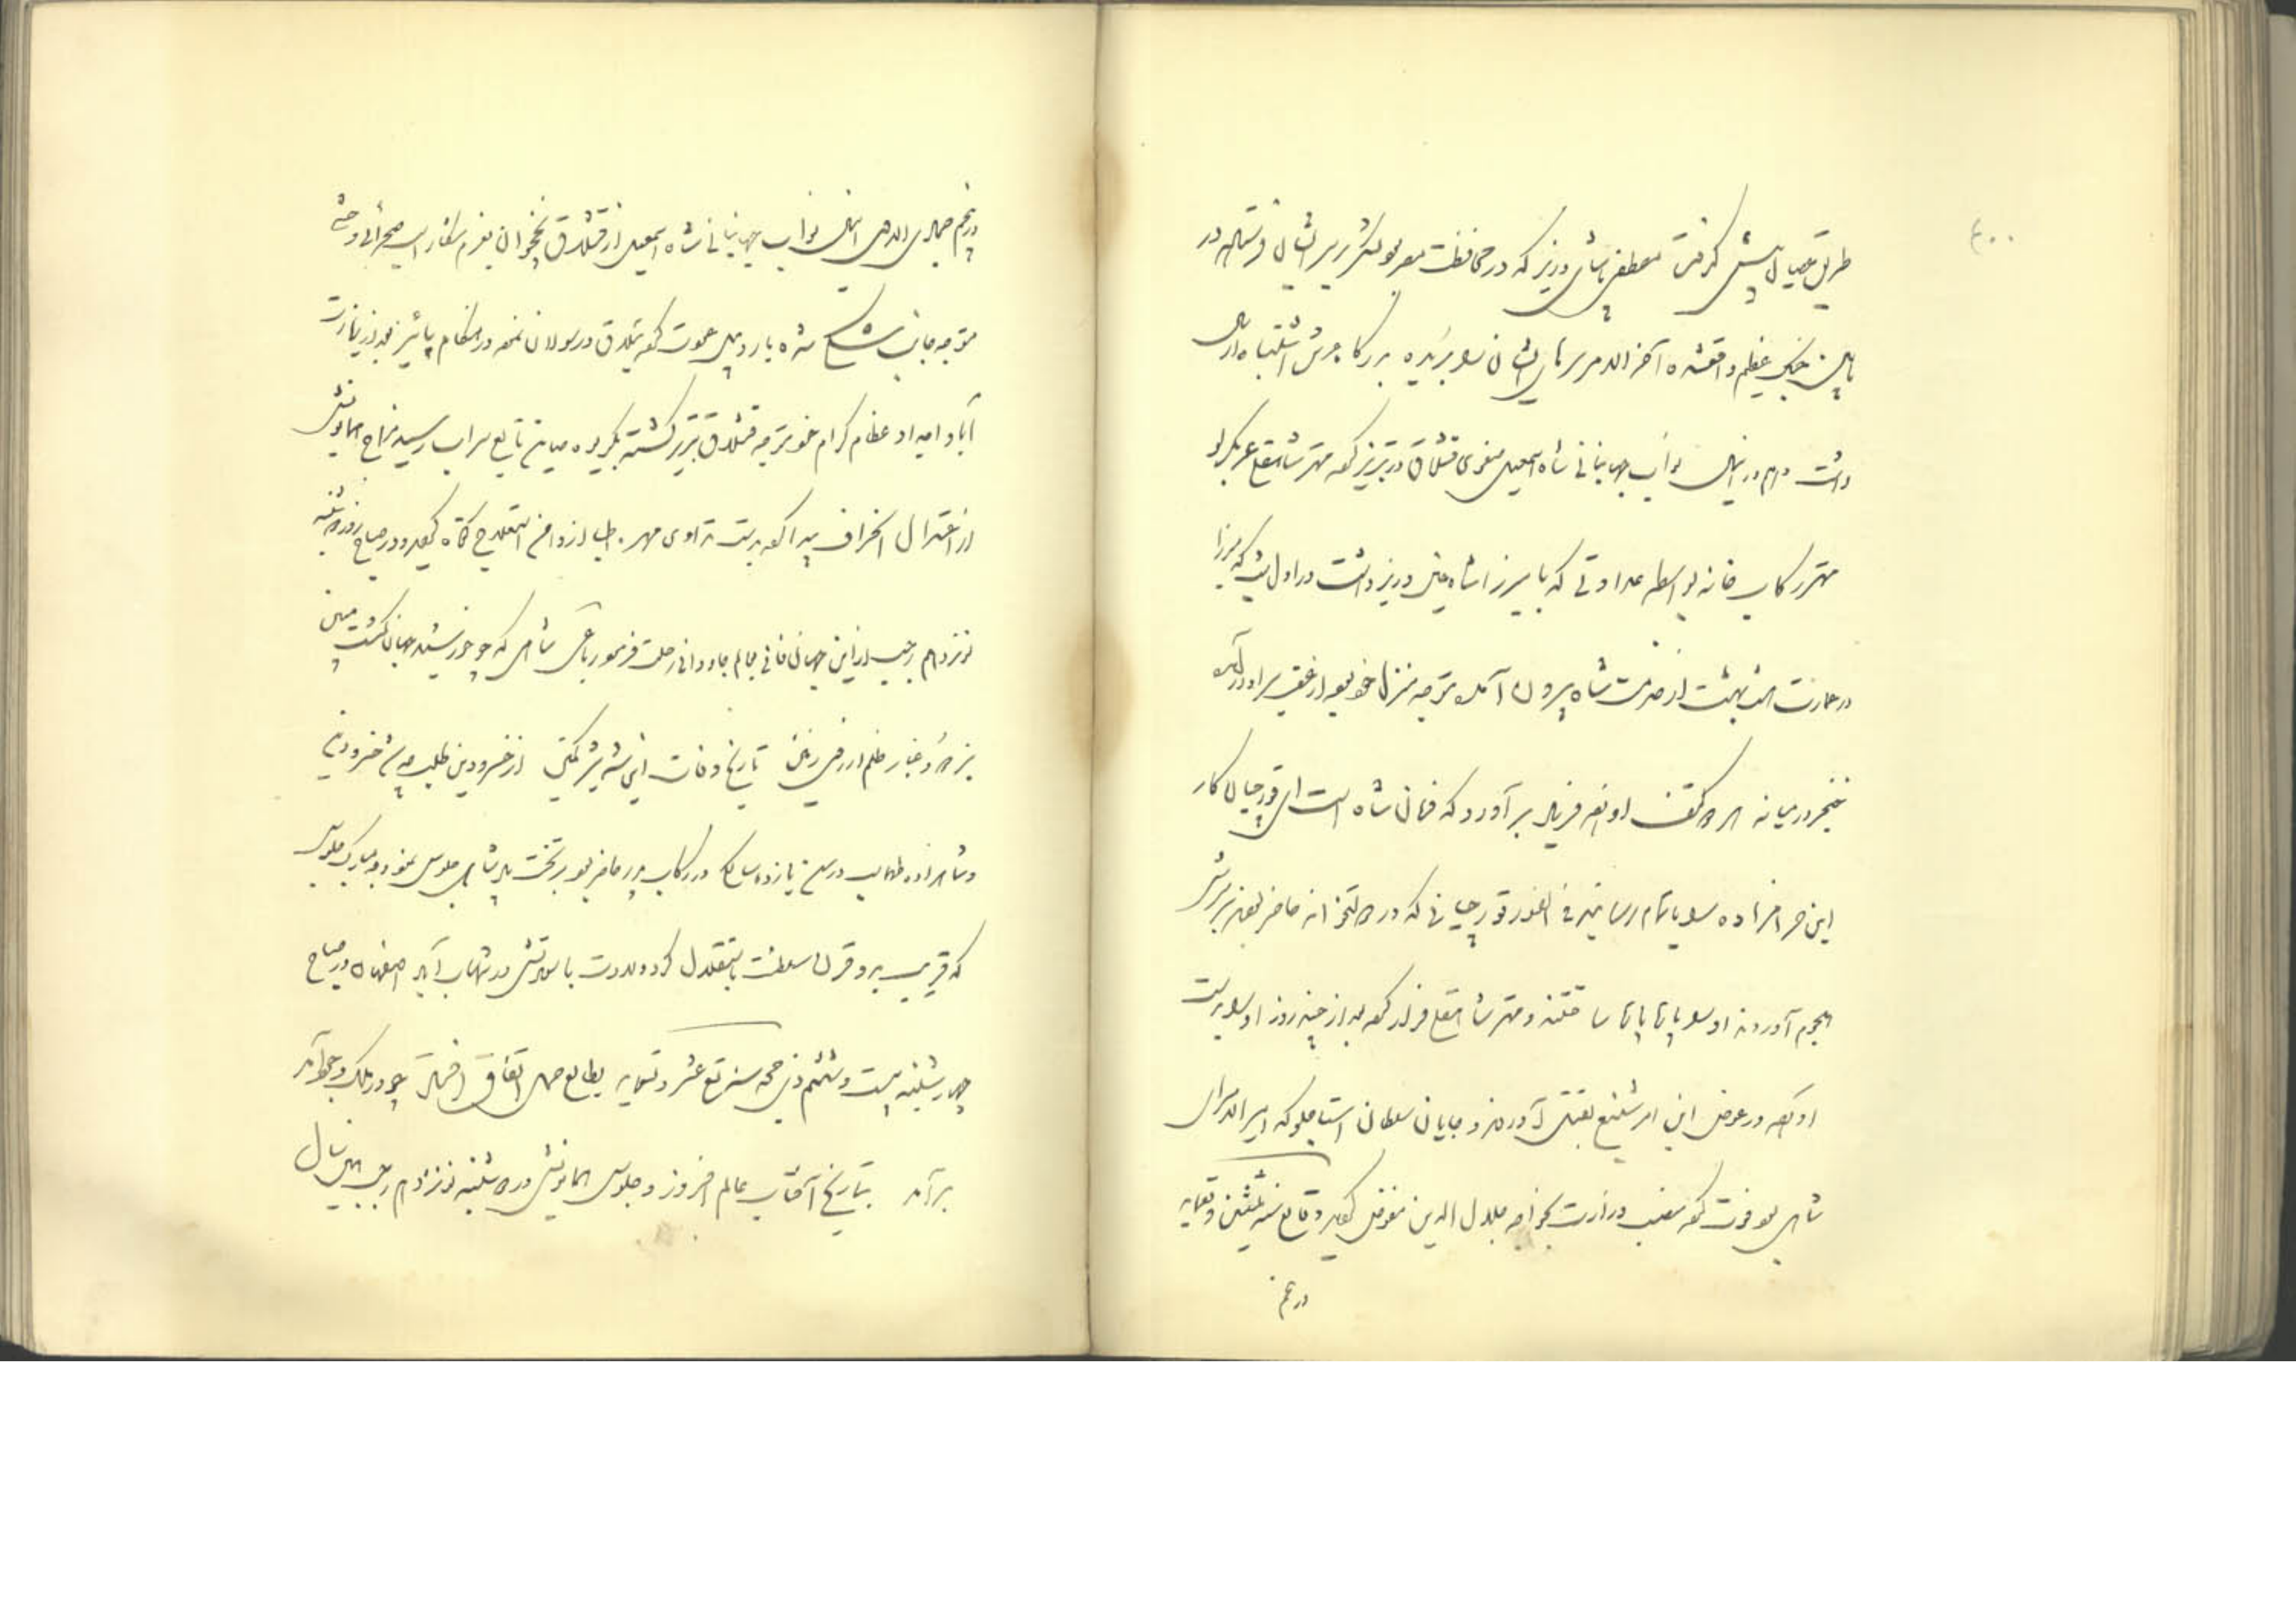 ۴۰۰
طریق عصیان پیش گرفتن مصطفی پاشای وزیر که در محافظت مصر بود لشکر بر سر ایشان فرستاد در
پای جنگ عظیم واقع شده آخر الامر سرهای ایشان را بریده بدرگاه
داشت هم در این سال نواب جهانبانی شاه اسمعیل صفوی قشلاق در تبریز کرد مهتر شاهقلی عربگیرلو
مهتر رکاب خانه بواسطه عداوتی که با میرزا شاه حسین وزیر داشت در اول شب که میرزا
در عمارت هشت بهشت از خدمت شاه بیرون آمده متوجه منزل خود بود از عقب سر او درآمده
خنجر در میانه هر دو کتف او زد فریاد برآورد که فرمان شاه است ای قورچیان کار
این حرامزاده را باتمام رسانید فی الفور قورچیانی که در دولتخانه حاضر بودند بر سرش
هجوم آوردند او را پاره پاره ساختند و مهتر شاهقلی فرار کرد بعد از چند روز او را بدست
آورده در عوض این امر شنیع بقتل آوردند و چایان سلطان استاجلو که امیر الامرای
شاهی بود فوت کرد منصب وزارت بخواجه جلال الدین مفوض گردید وقایع سنه ثلثین و تسعمایه
در پنجم جمادی الاول این سال نواب جهانبانی شاه اسمعیل از قشلاق نخجوان بعزم شکار اسب صحرائی وحشی
متوجه جانب شکی شده باردبیل عودت کرد ییلاق در سورلان نموده در هنگام پائیز بعد از زیارت
آباء و اجداد عظام کرام خود متوجه قشلاق تبریز گشته بگریوه صاین تابع سراب رسید مزاج همایونش
از اعتدال انحراف پیدا کرد دست تداوی مهره اطبا از دامن استعلاج کوتاه گردید و در صباح روز دوشنبه
نوزدهم رجب از این جهان فانی بعالم جاودانی رحلت فرمود رباعی شاهی که چو خورشید جهان گشت مبین
بزدود غبار ظلم از روی زمین تاریخ وفات این شه شیر کمین از خسرو دین طلب چو شد خسرو دین
و شاهزاده طهماسب در سن یازده سالگی در رکاب پدر حاضر بود بر تخت پادشاهی جلوس نمود و مبارک جلوسی
که قریب بدو قرن سلطنت باستقلال کرد ولادت با سعادتش در شهاب آباد اصفهان در صباح
چهارشنبه بیست و ششم ذی حجه سنه تسع عشر و تسعمایه بطالع حمل اتفاق افتاد چو در ملک وجود آمد
برآمد تاریخ آفتاب عالم افروز و جلوس همایونش در دوشنبه نوزدهم رجب این سال